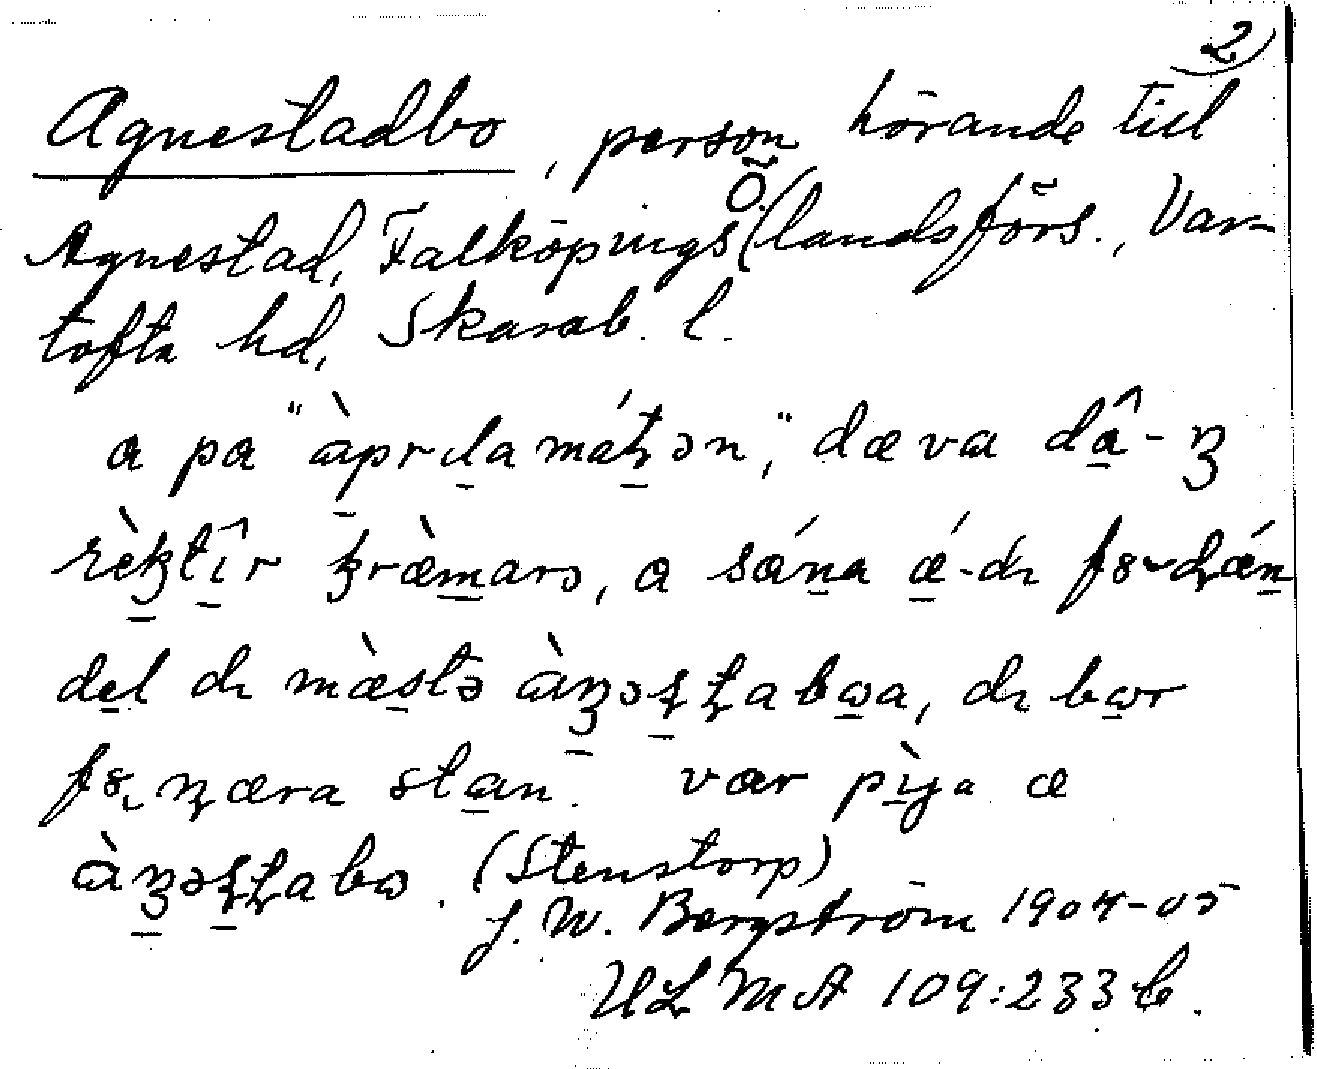 2)
Agnestadbo, person hörande till
Agnestad, Falköpings Ö. (landsförs., Var-
tofta hd, Skarab. l.
a pa "àprɩla mátən", dæva dâ-ŋ
rèktîr kræ̀marɔ, a sǽna ǽ-dɩ
del dɩ mæ̀stə àŋəstabɷa, dɩ bɷr
stan. vær pìga æ
àŋəstabɷ. (Stenstorp)
J. W. Bergström 1904-05
ULMA 109:233 b.